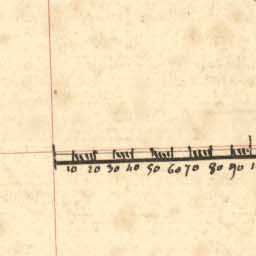 10 20 30 40 50 60 70 80 90